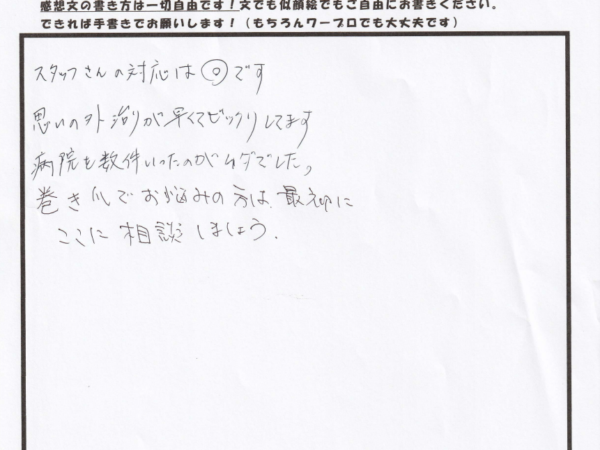 感想文の書き方は一切自由です！文でも似顔絵でもご自由にお書きください。
できれば手書きでお願いします！（もちろんワープロでも大丈夫です）
スタッフさんの対応は◎です
思いの外治りが早くてビックリしてます
病院も数件いったのがムダでした。
巻き爪でお悩みの方は、最初に
ここに相談しましょう。